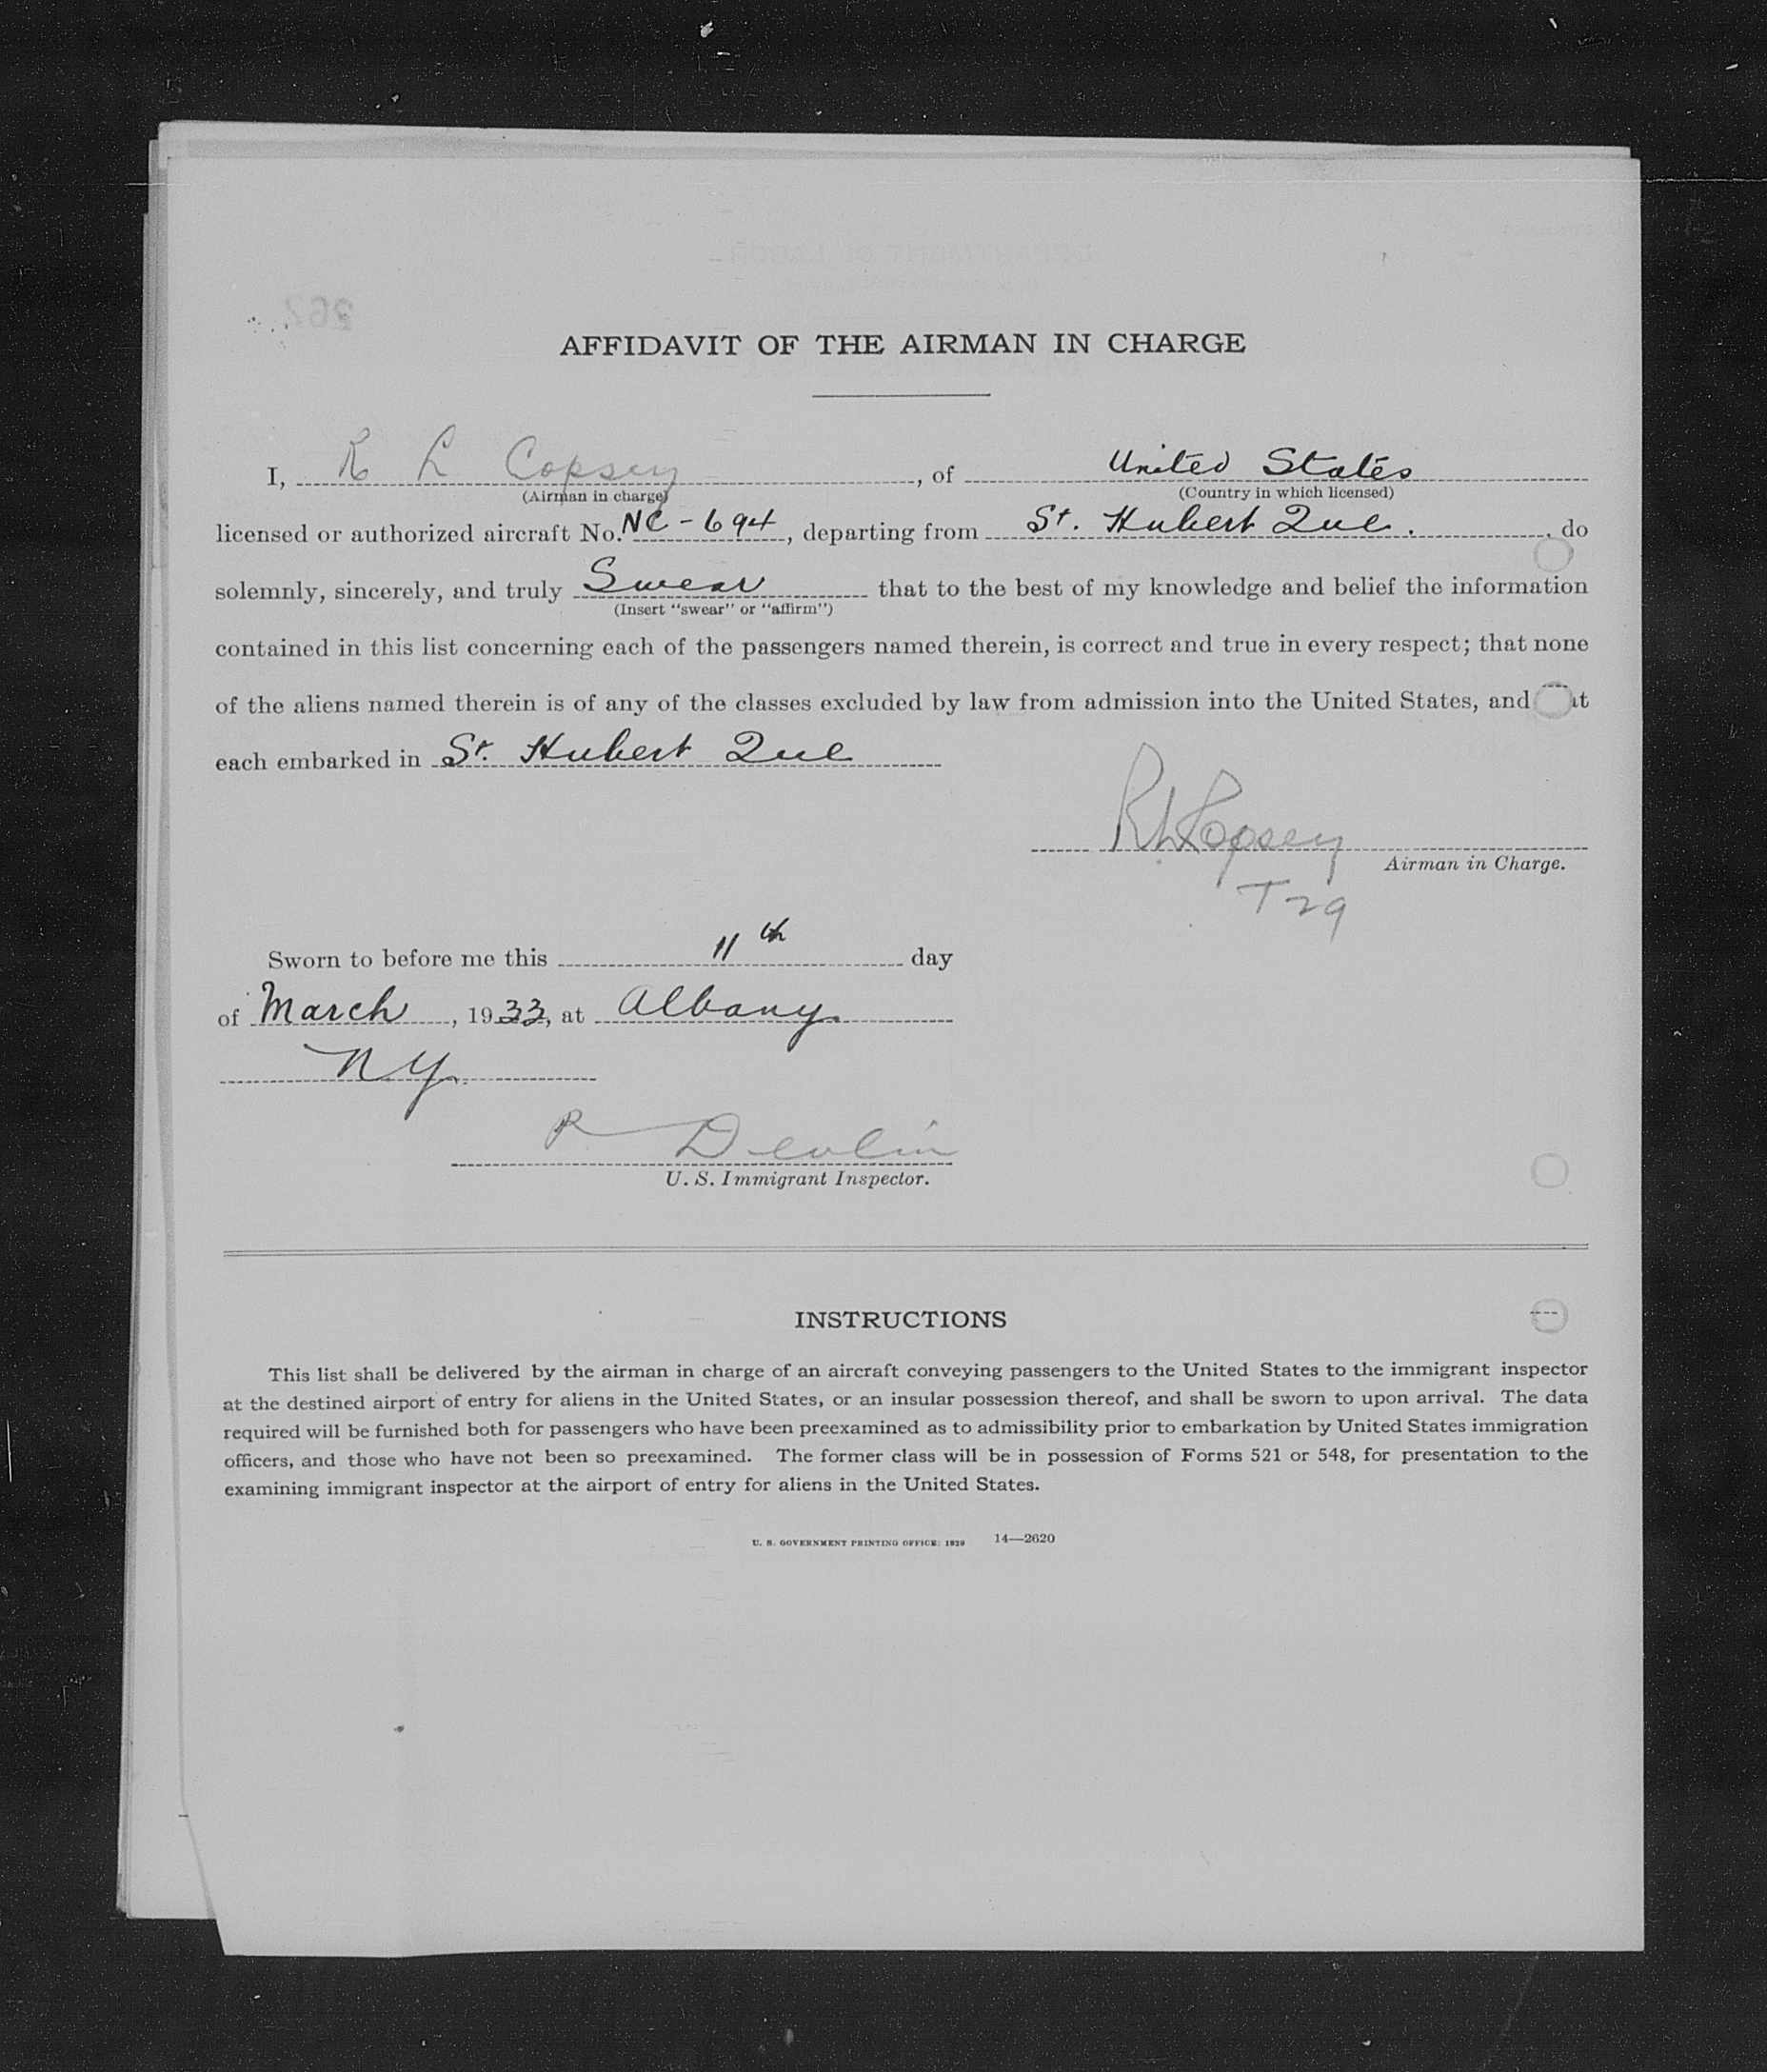 AFFIDAVIT OF THE AIRMAN IN CHARGE
I, R L Copsey, of United States
(Airman in charge) (Country in which licensed)
licensed or authorized aircraft No. NC-694, departing from St. Hubert Que., do
solemnly, sincerely, and truly Swear that to the best of my knowledge and belief the information
(Insert "swear" or "affirm")
contained in this list concerning each of the passengers named therein, is correct and true in every respect; that none
of the aliens named therein is of any of the classes excluded by law from admission into the United States, and
each embarked in St. Hubert Que
R L Copsey
Airman in Charge.
T29
Sworn to before me this 11th day
of March, 1933, at Albany
N Y.
R Devlin
U. S. Immigrant Inspector.
INSTRUCTIONS
This list shall be delivered by the airman in charge of an aircraft conveying passengers to the United States to the immigrant inspector
at the destined airport of entry for aliens in the United States, or an insular possession thereof, and shall be sworn to upon arrival. The data
required will be furnished both for passengers who have been preexamined as to admissibility prior to embarkation by United States immigration
officers, and those who have not been so preexamined. The former class will be in possession of Forms 521 or 548, for presentation to the
examining immigrant inspector at the airport of entry for aliens in the United States.
U. S. GOVERNMENT PRINTING OFFICE: 1929 14—2620